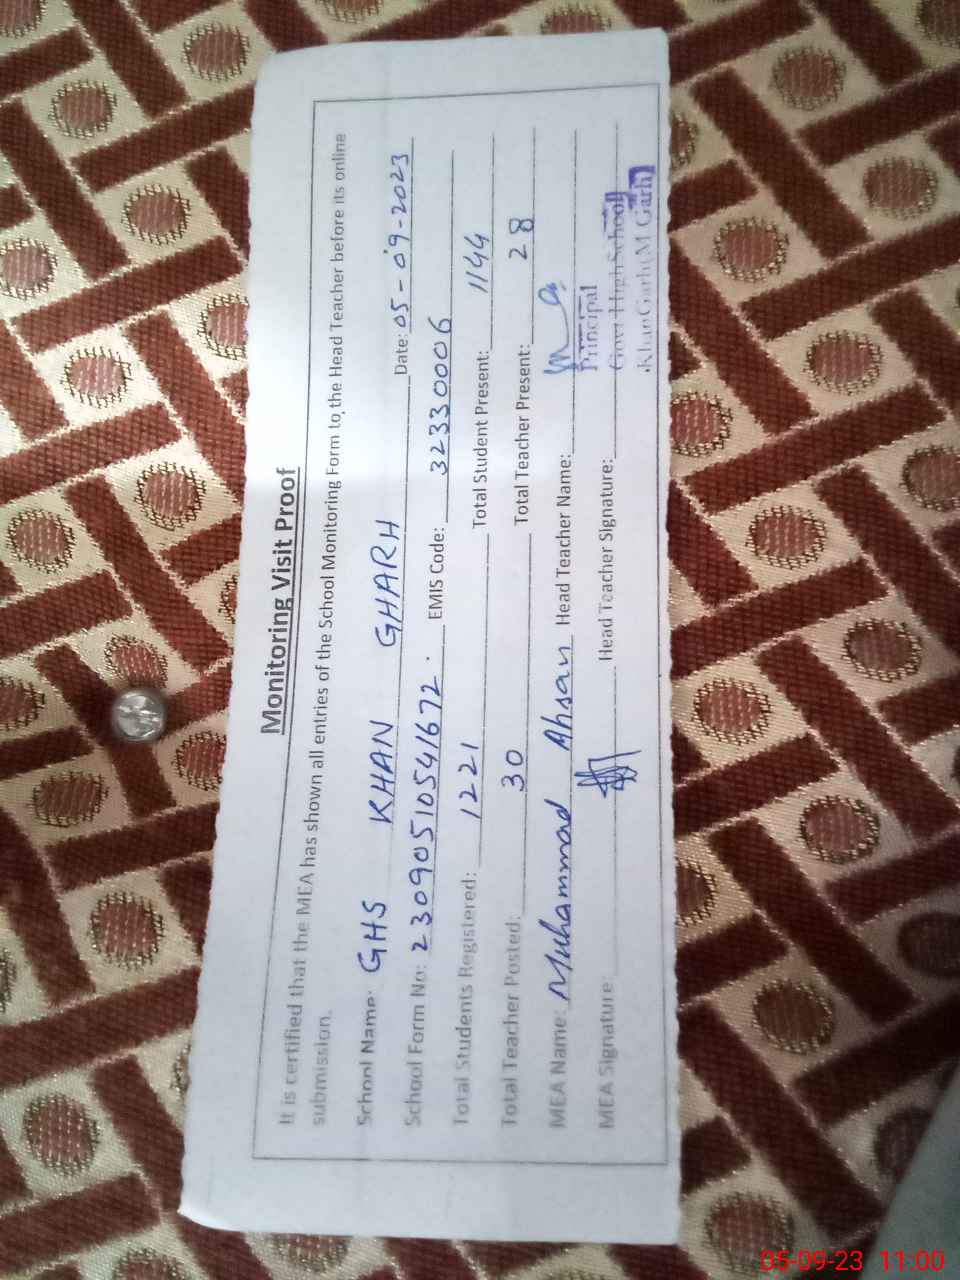 Monitoring Visit Proof
It is certified that the MEA has shown all entries of the School Monitoring Form to the Head Teacher before its online
submission.
School Name: GHS KHAN GHARH Date: 05-09-2023
School Form No: 23090510541672. EMIS Code: 32330006
Total Students Registered: 1221 Total Student Present: 1144
Total Teacher Posted: 30 Total Teacher Present: 28
MEA Name: Muhammad Ahsan Head Teacher Name:
MEA Signature: Head Teacher Signature:
Principal
Govt High School
Khan Garh (M Garh)
05-09-23 11:00